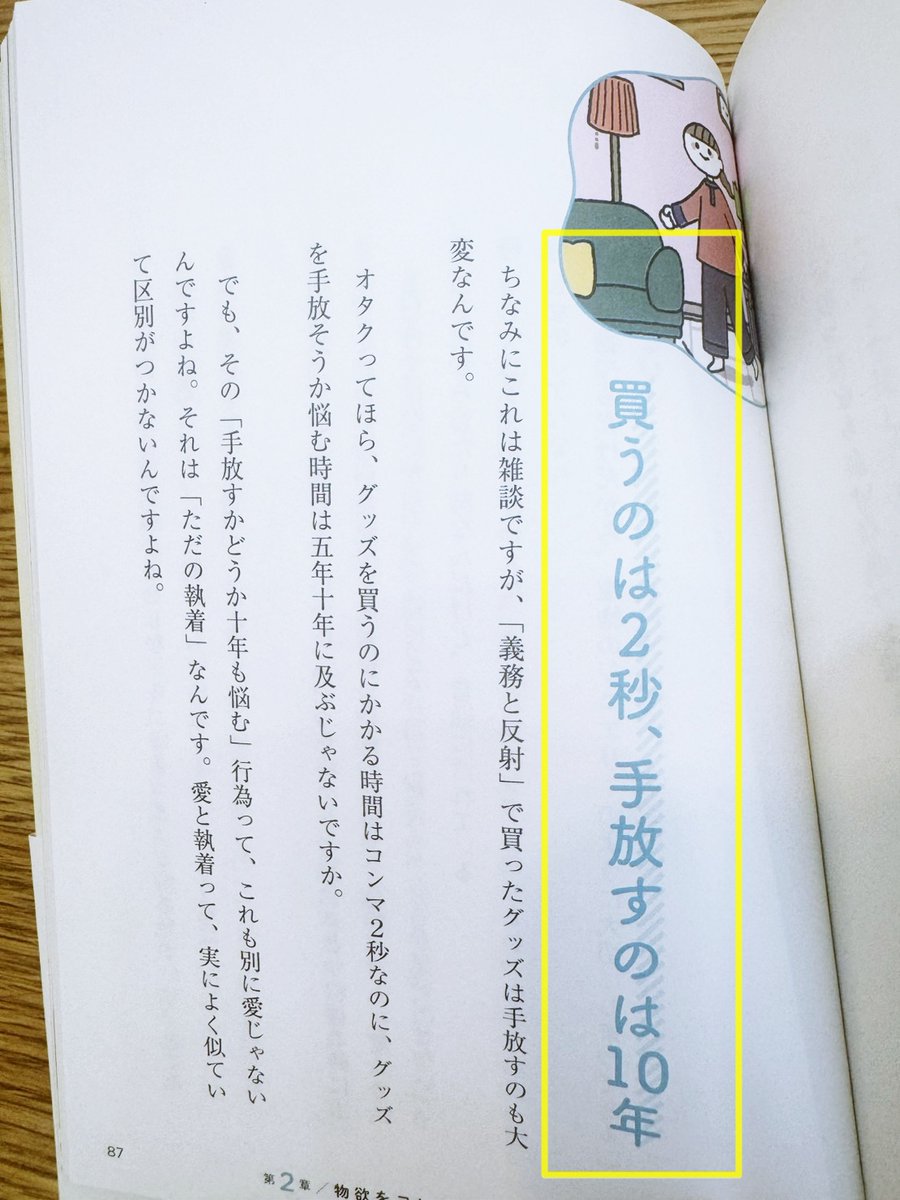 買うのは2秒、手放すのは10年
ちなみにこれは雑談ですが、「義務と反射」で買ったグッズは手放すのも大
変なんです。
オタクってほら、グッズを買うのにかかる時間はコンマ2秒なのに、グッズ
を手放そうか悩む時間は五年十年に及ぶじゃないですか。
でも、その「手放すかどうか十年も悩む」行為って、これも別に愛じゃない
んですよね。それは「ただの執着」なんです。愛と執着って、実によく似てい
て区別がつかないんですよね。
87
第2章/物欲を